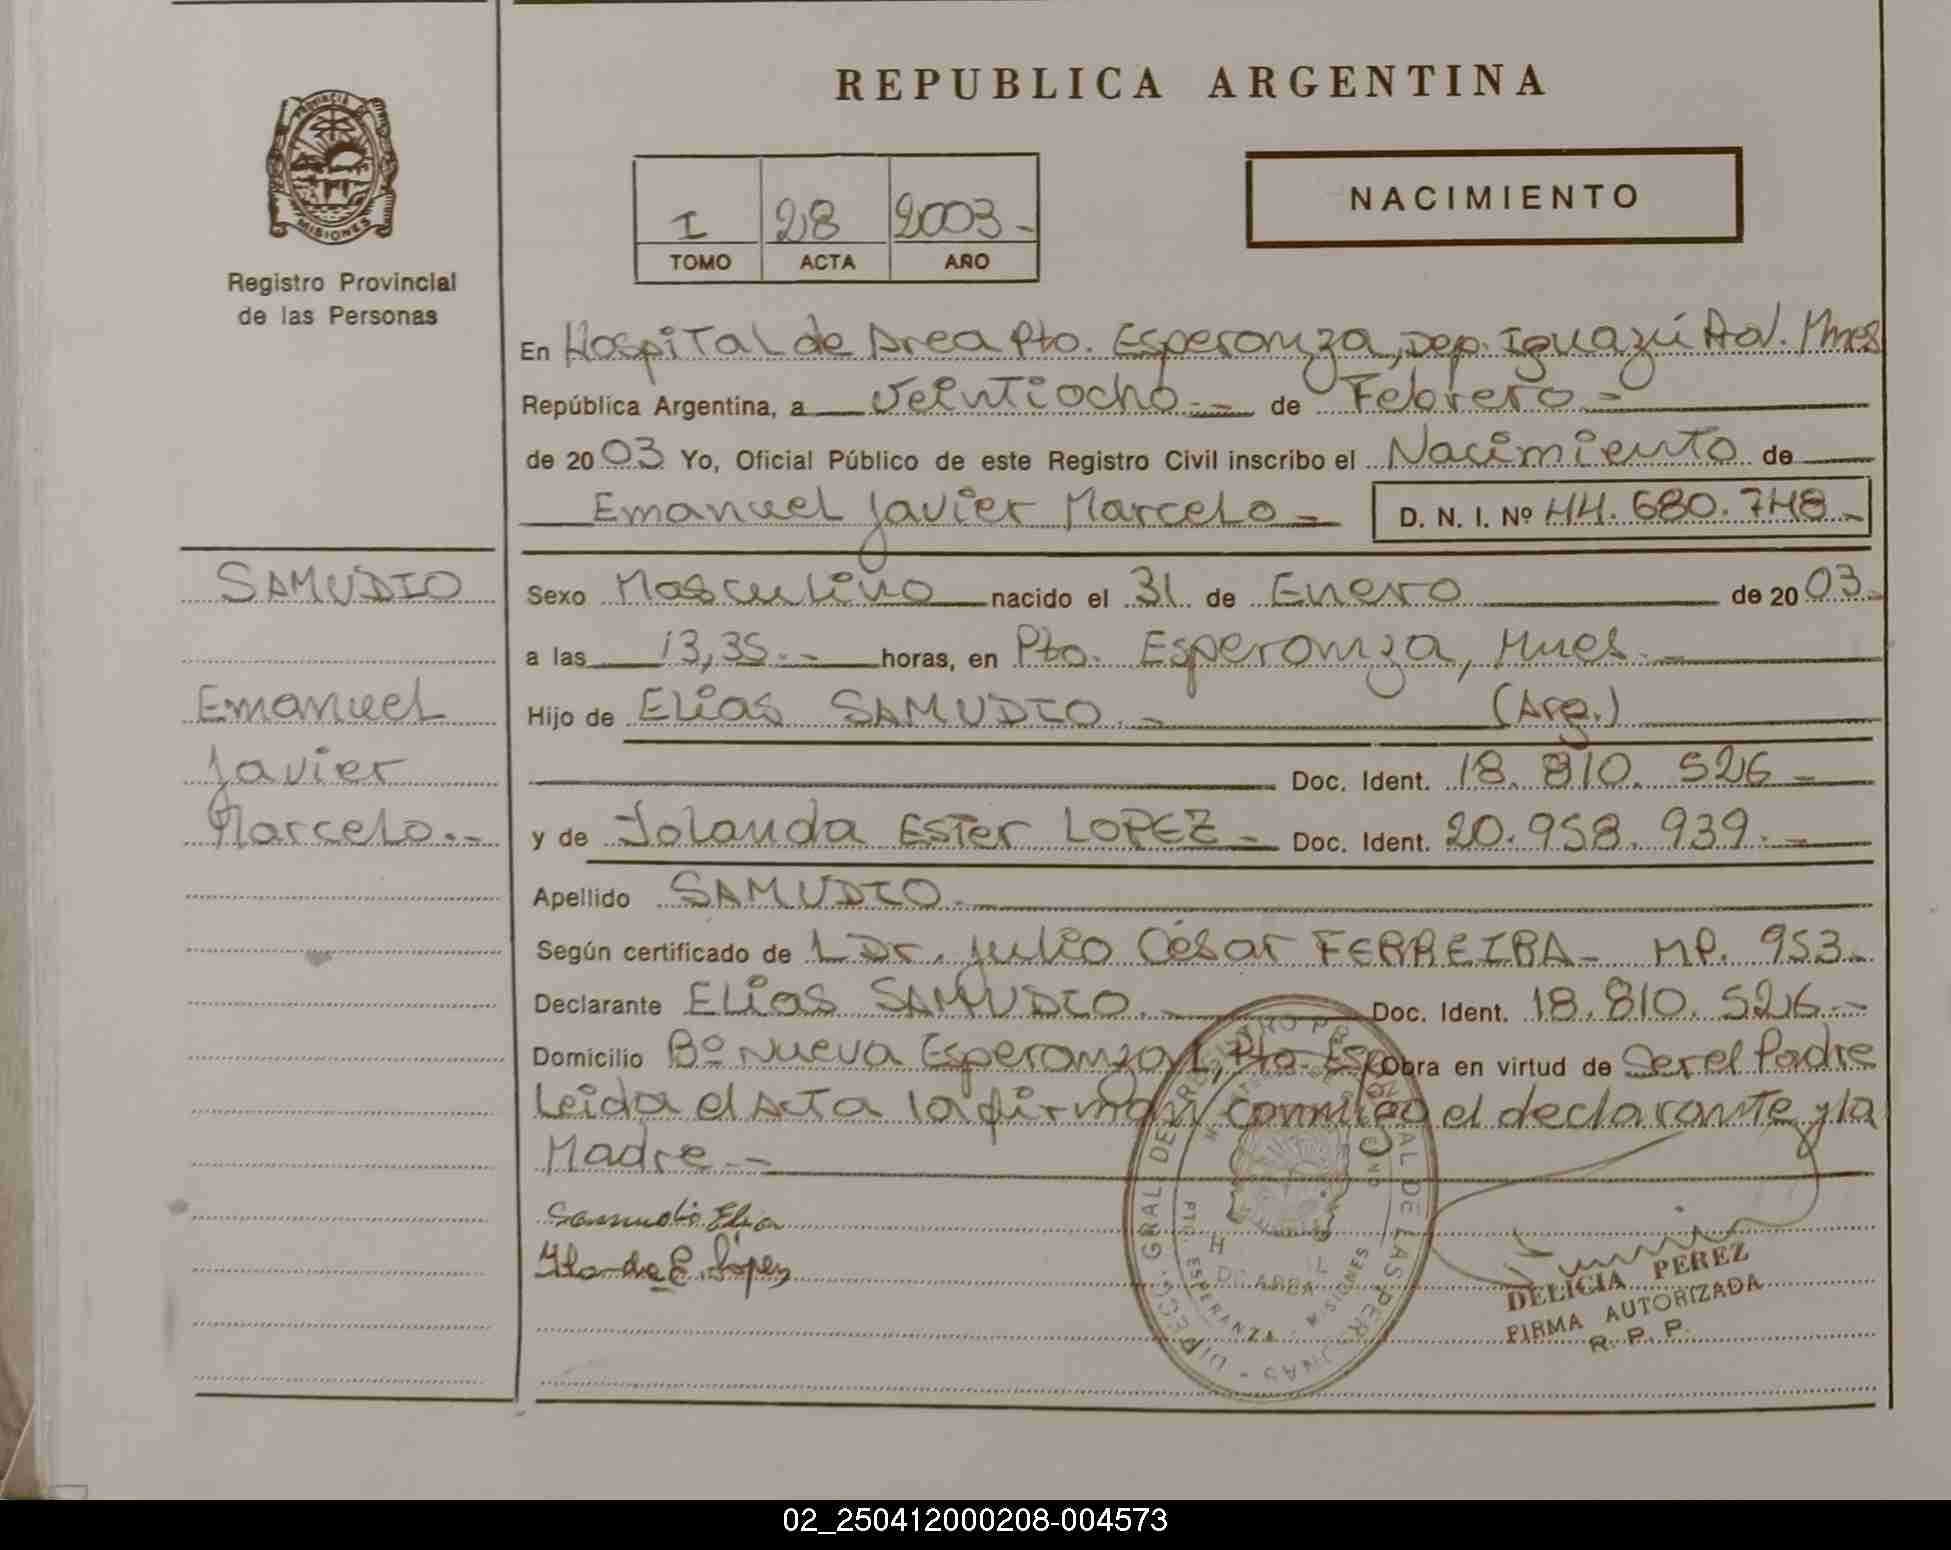 REPUBLICA ARGENTINA
PROVINCIA DE
MISIONES
Registro Provincial
de las Personas
I 28 2003.-
TOMO ACTA AÑO
NACIMIENTO
En Hospital de Area Pto. Esperanza, Dep. Iguazú Mnes
República Argentina, a Veintiocho.- de Febrero.-
de 2003 Yo, Oficial Público de este Registro Civil inscribo el Nacimiento de
Emanuel Javier Marcelo.- D. N. I. Nº 44.680.748.-
SAMUDIO
Emanuel
Javier
Marcelo.-
Sexo Masculino nacido el 31 de Enero de 2003.-
a las 13,35.- horas, en Pto. Esperanza, Mnes.-
Hijo de Elias SAMUDIO.- (Arg.)
Doc. Ident. 18.810.526.-
y de Yolanda Ester LOPEZ.- Doc. Ident. 20.958.939.-
Apellido SAMUDIO.-
Según certificado de Dr. Julio César FERREIRA- MP. 953.-
Declarante Elias SAMUDIO.- Doc. Ident. 18.810.526.-
Domicilio Bº Nueva Esperanza, Pto. Esp. Obra en virtud de Ser el Padre
Leida el Acta la firman conmigo el declarante y la
Madre.-
Samudio Elia
Yolanda E. López
DELICIA PEREZ
FIRMA AUTORIZADA
R. P. P.
02_250412000208-004573